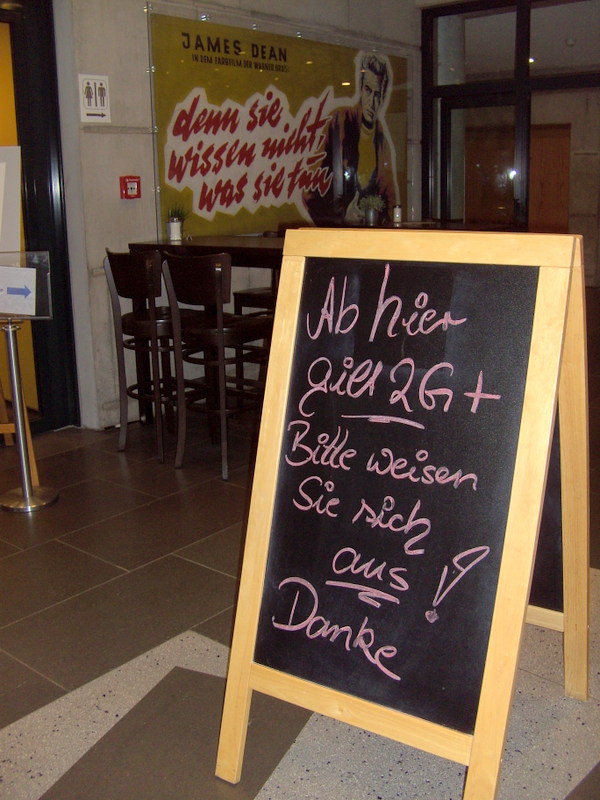 JAMES DEAN
IN DEM FARBFILM DER WARNER BROS.
denn sie
wissen nicht,
was sie tun
Ab hier
gilt 2G+
Bitte weisen
Sie sich
aus!
Danke